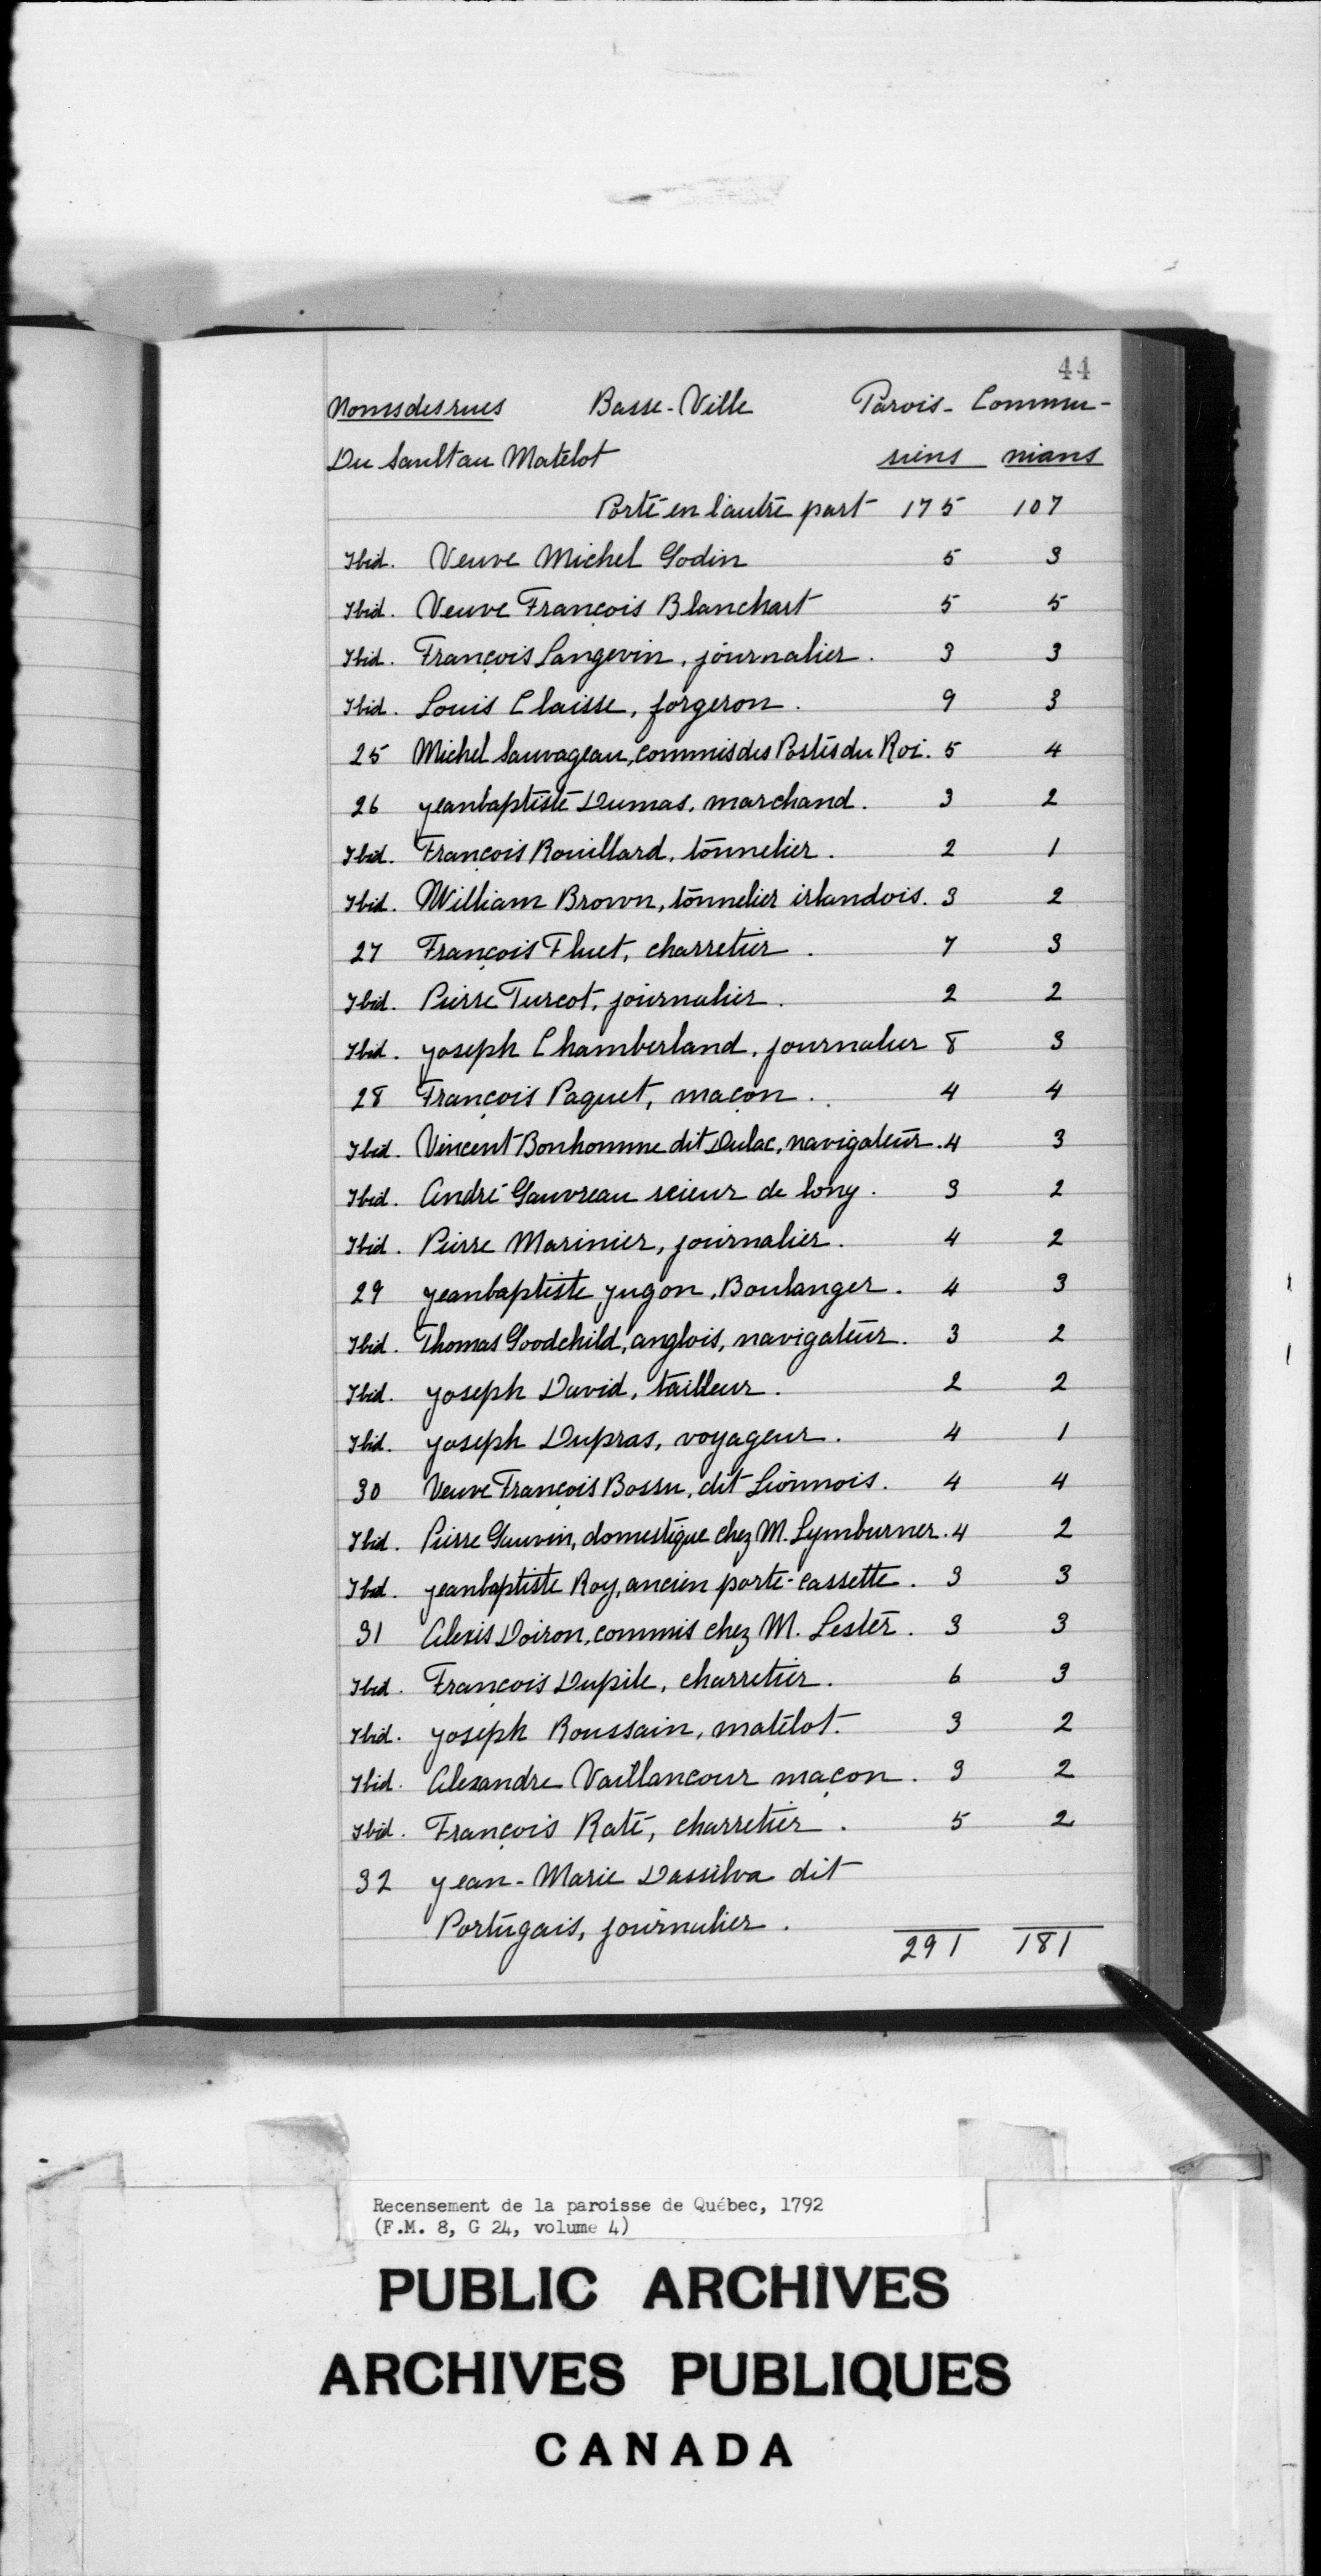 44
Noms des rues Basse-Ville Parois- Commu-
Du Sault au Matelot siens nians
Porté en l'autre part 175 107
Ibid. Veuve Michel Godin 5 3
Ibid. Veuve François Blanchart 5 5
Ibid. François Langevin, journalier. 3 3
Ibid. Louis Claisse, forgeron. 9 3
25 Michel Sauvageau, commis des Postes du Roi. 5 4
26 Jeanbaptiste Dumas, marchand. 3 2
Ibid. François Rouillard, tonnelier. 2 1
Ibid. William Brown, tonnelier irlandois. 3 2
27 François Fluet, charretier. 7 3
Ibid. Pierre Turcot, journalier. 2 2
Ibid. Joseph Chamberland, journalier 8 3
28 François Paquet, maçon. 4 4
Ibid. Vincent Bonhomme dit Dulac, navigateur. 4 3
Ibid. André Gauvreau scieur de long. 3 2
Ibid. Pierre Marinier, journalier. 4 2
29 Jeanbaptiste Jugon, Boulanger. 4 3
Ibid. Thomas Goodchild, anglois, navigateur. 3 2
Ibid. Joseph David, tailleur. 2 2
Ibid. Joseph Dupras, voyageur. 4 1
30 Veuve François Bossu, dit Lionnois. 4 4
Ibid. Pierre Gauvin, domestique chez M. Lymburner. 4 2
Ibid. Jeanbaptiste Roy, ancien porte-cassette. 3 3
31 Alexis Doiron, commis chez M. Lester. 3 3
Ibid. François Dupile, charretier. 6 3
Ibid. Joseph Roussain, matelot. 3 2
Ibid. Alexandre Vaillancour maçon. 3 2
Ibid. François Raté, charretier. 5 2
32 Jean-Marie Dassilva dit
Portugais, journalier.
291 181
Recensement de la paroisse de Québec, 1792
(F.M. 8, G 24, volume 4)
PUBLIC ARCHIVES
ARCHIVES PUBLIQUES
CANADA